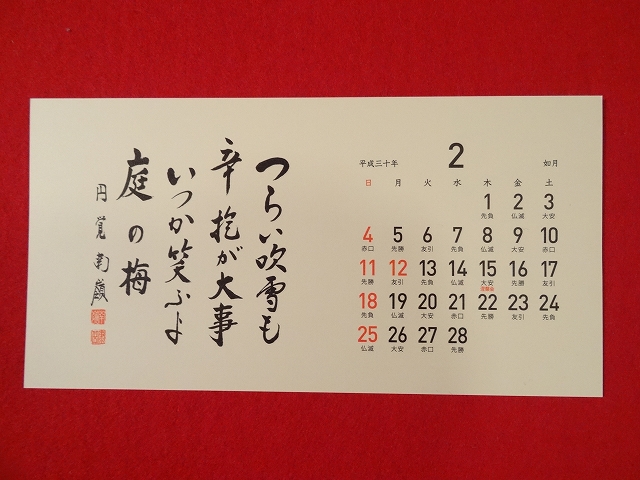 つらい吹雪も
辛抱が大事
いつか笑ふよ
庭の梅
円覚南嶺
平成三十年 2 如月
日 月 火 水 木 金 土
1 2 3
先負 仏滅 大安
4 5 6 7 8 9 10
赤口 先勝 友引 先負 仏滅 大安 赤口
11 12 13 14 15 16 17
先勝 友引 先負 仏滅 大安 先勝 友引
涅槃会
18 19 20 21 22 23 24
先負 仏滅 大安 赤口 先勝 友引 先負
25 26 27 28
仏滅 大安 赤口 先勝